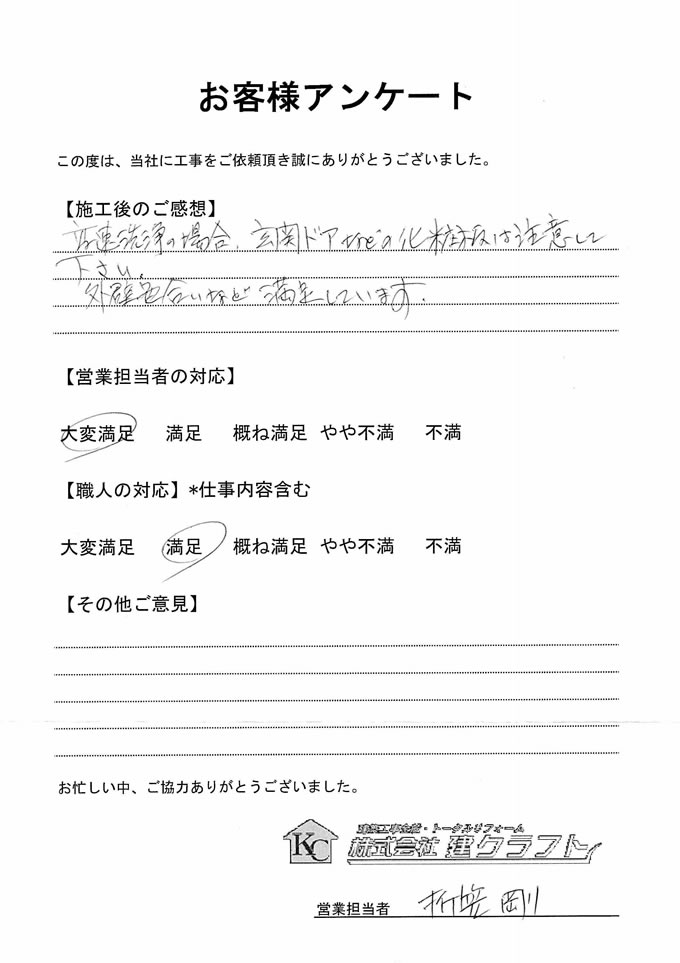 お客様アンケート
この度は、当社に工事をご依頼頂き誠にありがとうございました。
【施工後のご感想】
高速洗浄の場合、玄関ドアなどの化粧板は注意して
下さい。
外壁色合いなど満足しています。
【営業担当者の対応】
大変満足 満足 概ね満足 やや不満 不満
【職人の対応】*仕事内容含む
大変満足 満足 概ね満足 やや不満 不満
【その他ご意見】
お忙しい中、ご協力ありがとうございました。
建築工事全般・トータルリフォーム
KC 株式会社 建クラフト
営業担当者 折笠 剛